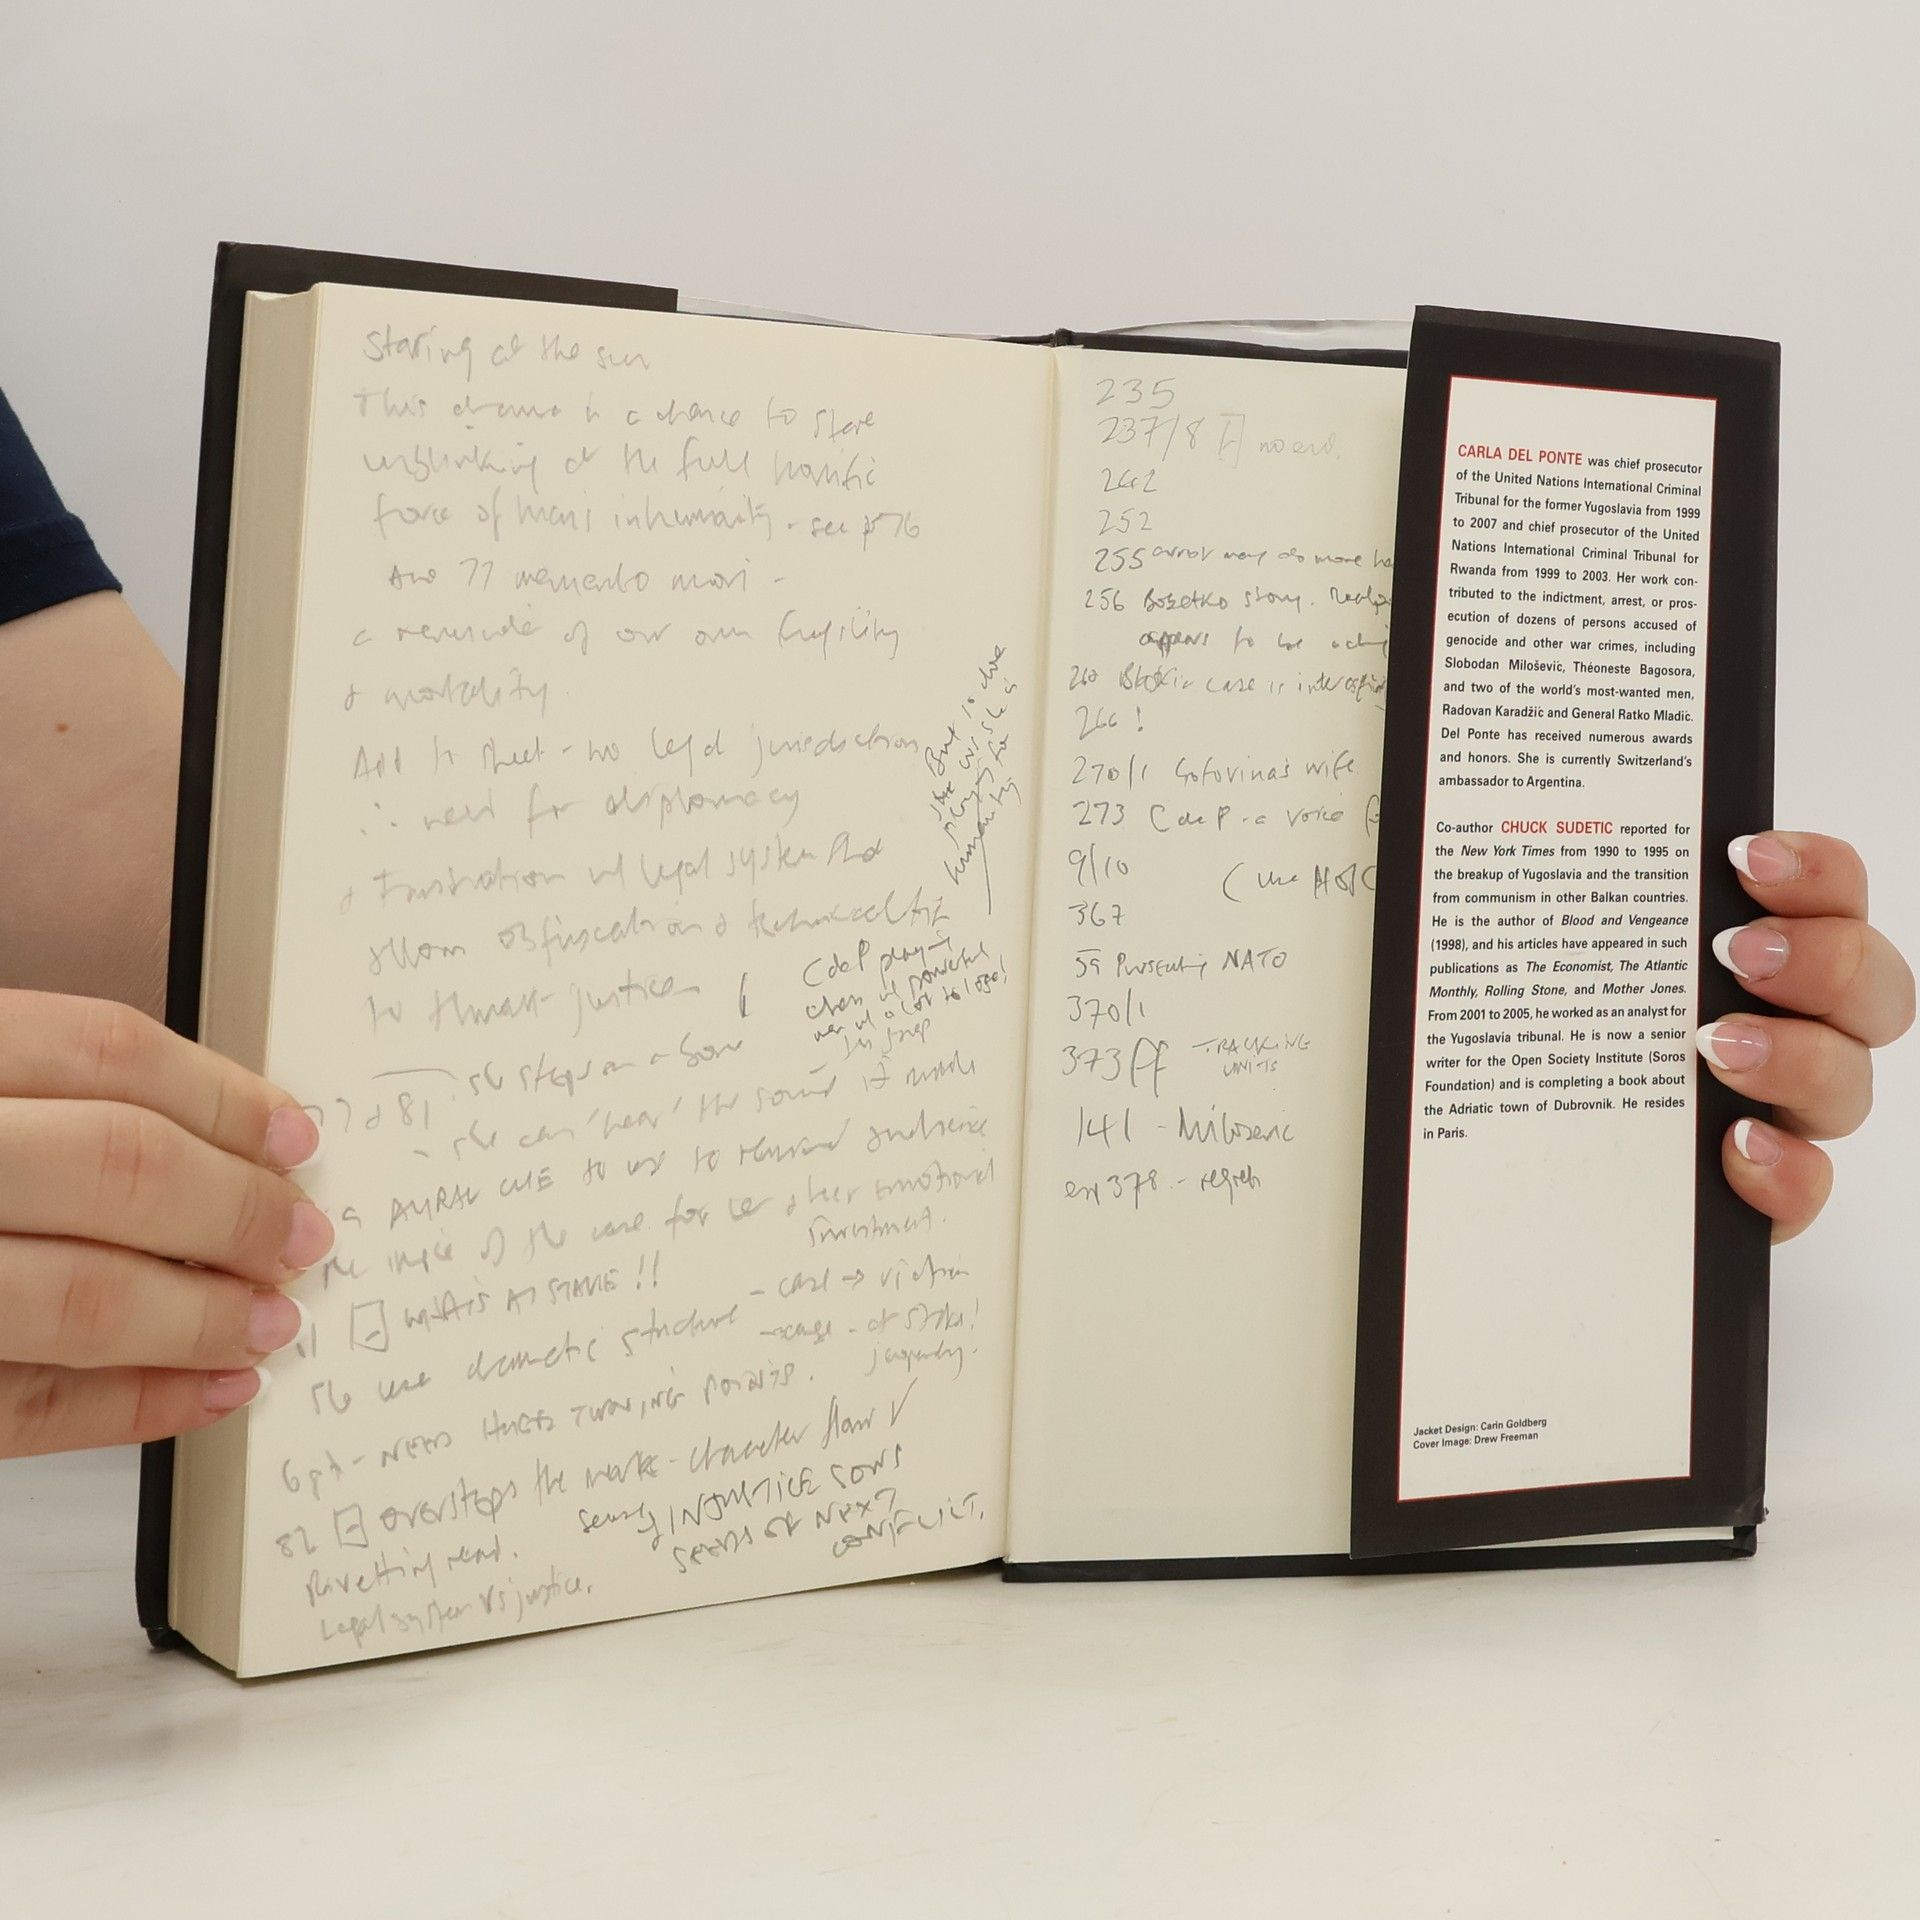 Staring at the sun
This drama is a chance to stare
unblinking at the full horrific
force of man's inhumanity - see p 76
AND 77 memento mori -
a reminder of our own fragility
& mortality
Add to that - no legal jurisdiction
∴ need for diplomacy
& frustration w/ legal system that
allows obfuscation & technicalities
to thwart justice
But to drive
she is
plays for
humanity
CdeP playing
chess w/ powerful
men w/ a lot to lose!
77 & 81 she steps on a bone
- she can 'hear' the sound it made
a AURAL CUE to use to remind audience
the impact of the case for her & her emotional
investment.
WHAT IS AT STAKE!!
to use dramatic structure - case → victim
- at stake!
jeopardy.
6 pt - NEEDS TURNING POINTS.
82 oversteps the mark - character flaw ✓
Rivetting read.
sense of INJUSTICE SOWS
SEEDS OF NEXT
CONFLICT.
Legal system vs justice.
235
237/8 no end.
242
252
255 may do more
256 story.
appears to be
260 Blaskic case is interesting
266!
270/1 Gotovina's wife
273 CdeP - a voice
9/10 (use
367
59 Prosecuting NATO
370/1
373ff - TRACKING
UNITS
141 - Milosevic
378 - regrets
CARLA DEL PONTE was chief prosecutor
of the United Nations International Criminal
Tribunal for the former Yugoslavia from 1999
to 2007 and chief prosecutor of the United
Nations International Criminal Tribunal for
Rwanda from 1999 to 2003. Her work con-
tributed to the indictment, arrest, or pros-
ecution of dozens of persons accused of
genocide and other war crimes, including
Slobodan Milošević, Théoneste Bagosora,
and two of the world's most-wanted men,
Radovan Karadžić and General Ratko Mladić.
Del Ponte has received numerous awards
and honors. She is currently Switzerland's
ambassador to Argentina.
Co-author CHUCK SUDETIC reported for
the New York Times from 1990 to 1995 on
the breakup of Yugoslavia and the transition
from communism in other Balkan countries.
He is the author of Blood and Vengeance
(1998), and his articles have appeared in such
publications as The Economist, The Atlantic
Monthly, Rolling Stone, and Mother Jones.
From 2001 to 2005, he worked as an analyst for
the Yugoslavia tribunal. He is now a senior
writer for the Open Society Institute (Soros
Foundation) and is completing a book about
the Adriatic town of Dubrovnik. He resides
in Paris.
Jacket Design: Carin Goldberg
Cover Image: Drew Freeman